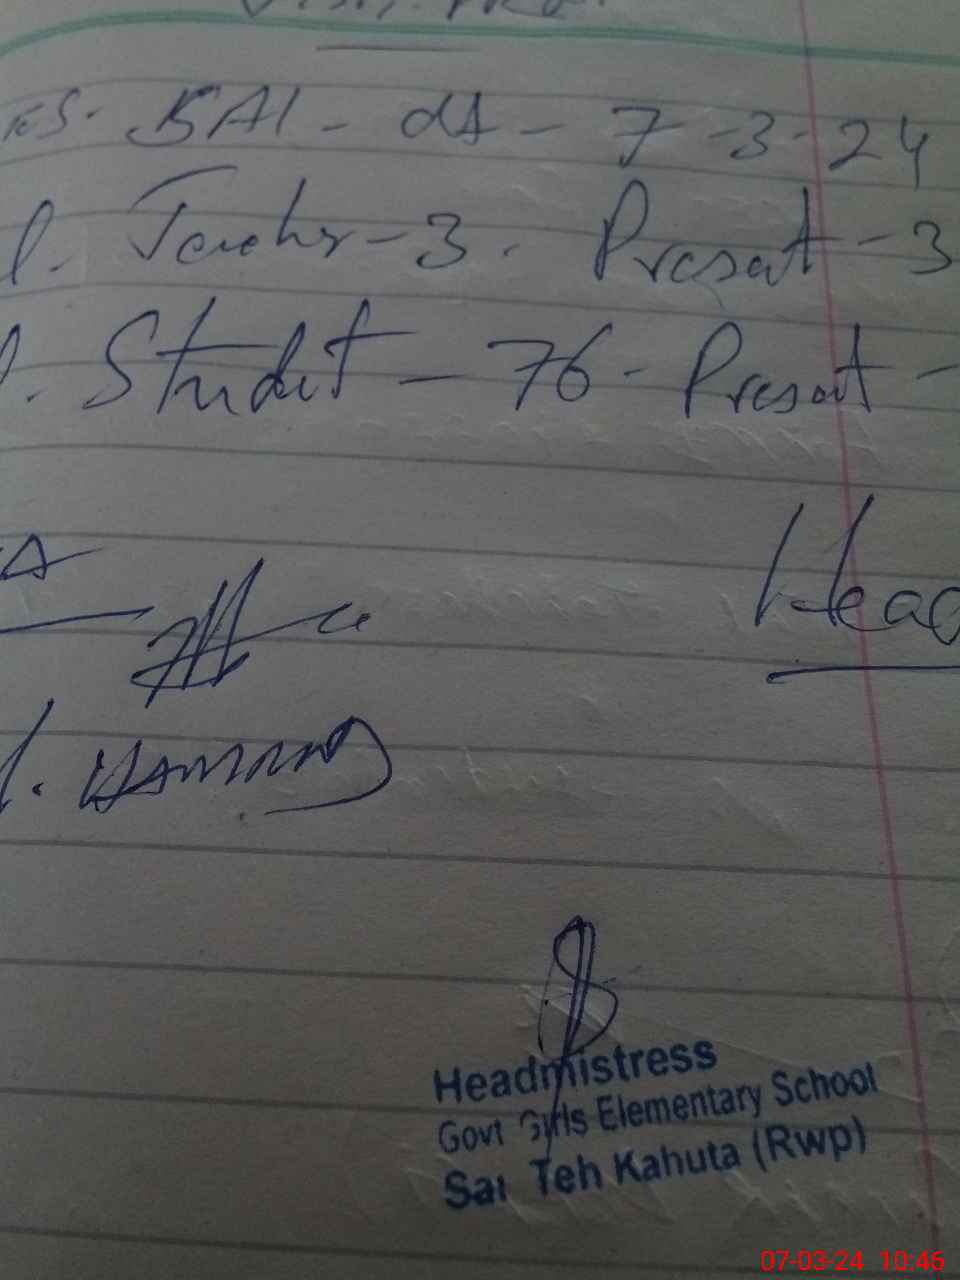 ES. SAI - dt - 7-3-24
l. Teacher - 3. Present - 3
l. Student - 76 - Present -
Head
Headmistress
Govt Girls Elementary School
Sai Teh Kahuta (Rwp)
07-03-24 10:46